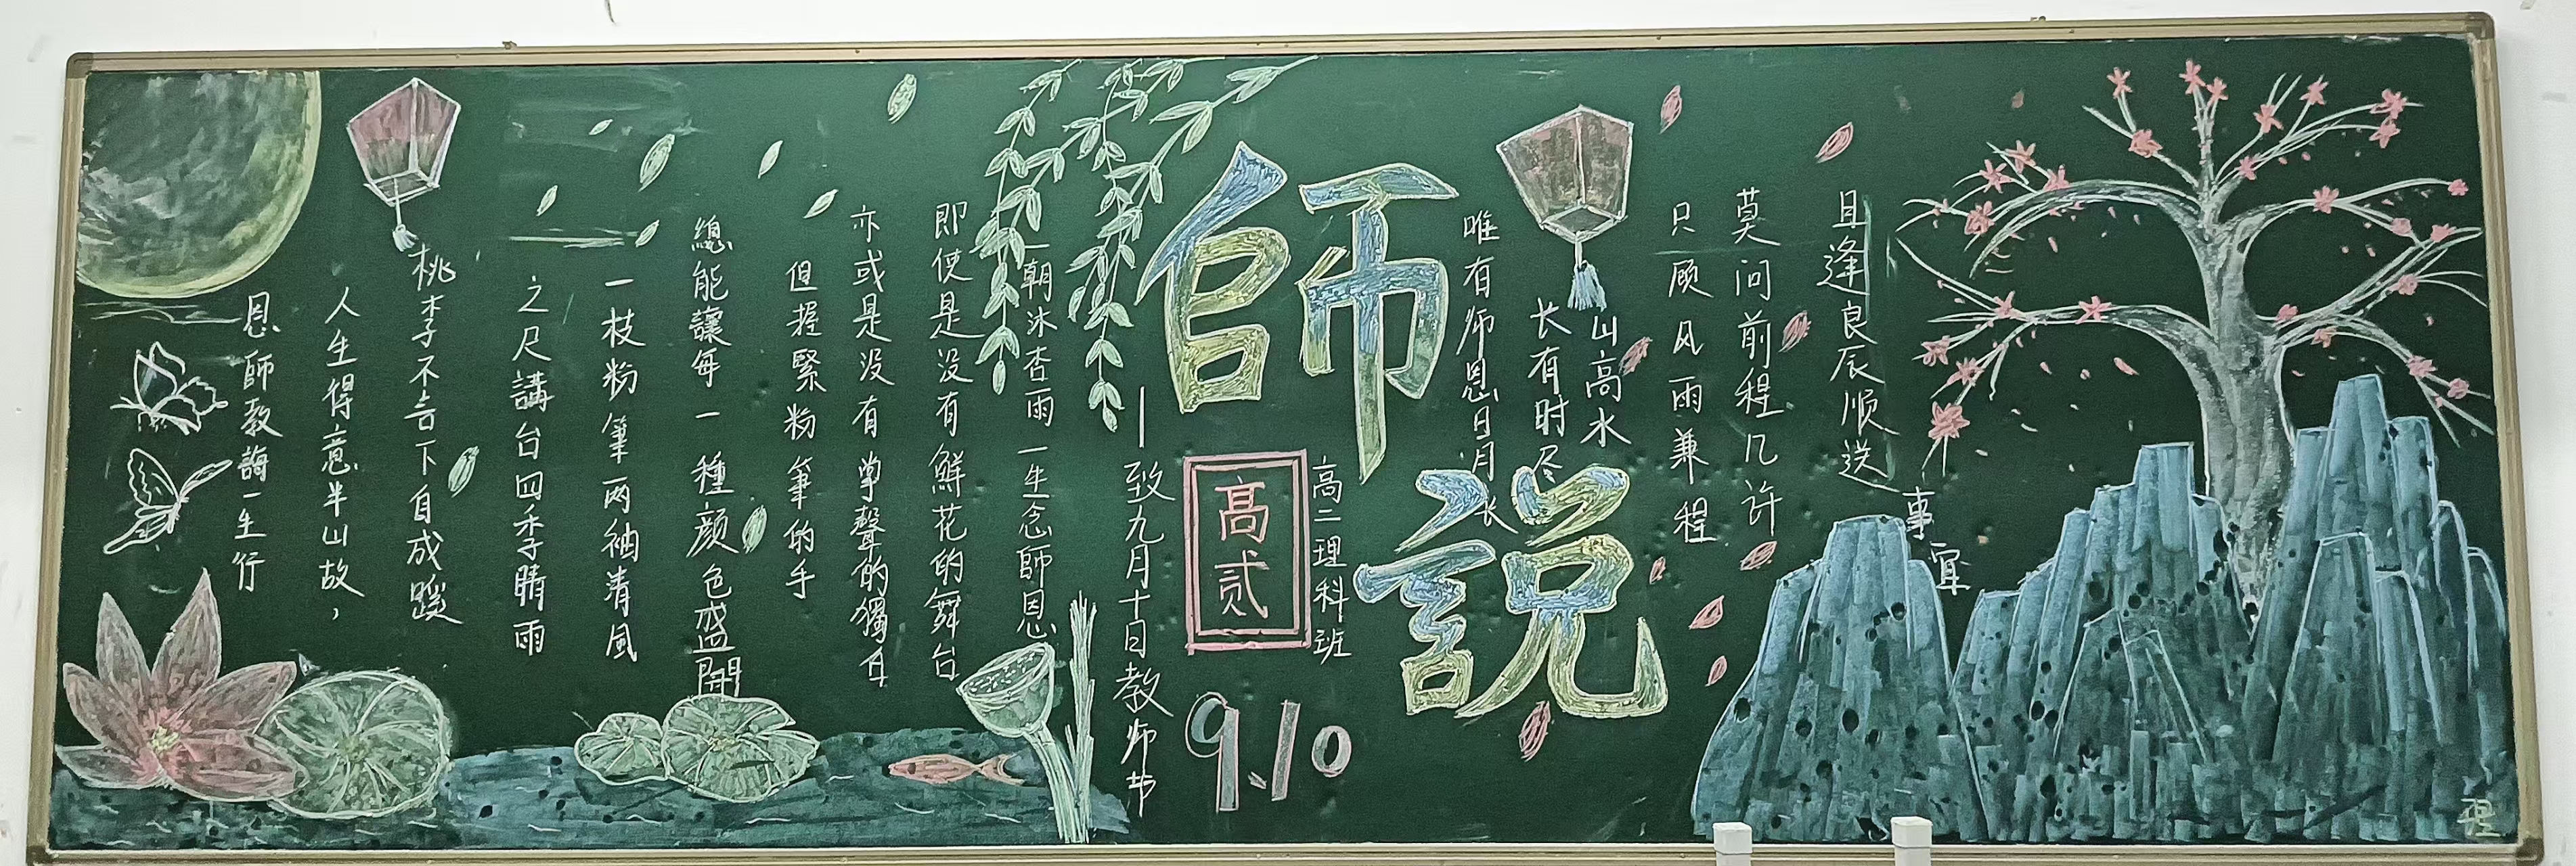 且逢良辰顺送
事宜
莫问前程几许
只顾风雨兼程
山高水
长有时尽
唯有师恩日月
长
師
説
高二理科班
高贰
9.10
—致九月十日教师节
一朝沐杏雨 一生念師恩
即使是没有鮮花的舞台
亦或是没有掌聲的獨白
但握緊粉筆的手
總能讓每一種顏色盛開
一枝粉筆两袖清風
之尺講台四季晴雨
桃李不言下自成蹊
人生得意半山故，
恩師教誨一生行
理